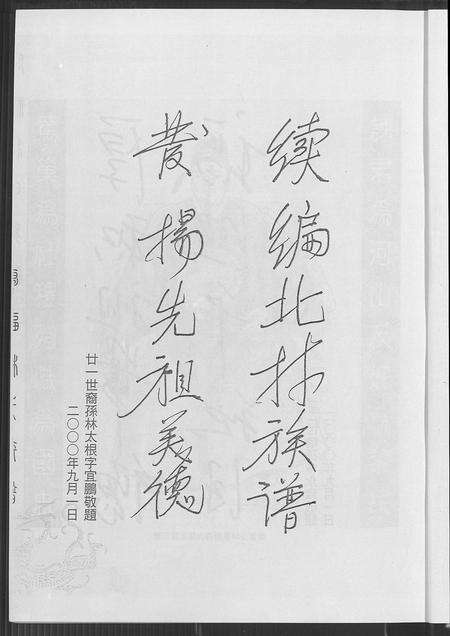 续编北林族谱
发扬先祖美德
廿一世裔孫林太根字宜鵬敬題
二〇〇〇年九月一日